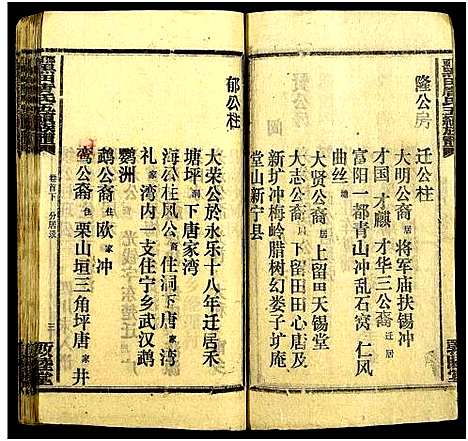 隆公房
迁公柱
大明公裔居将军庙扶锡冲
才国才麒才华三公裔迁居
富阳一都青山冲乱石窝仁风
曲丝
大贤公裔居上留田天锡堂
大志公裔居下留田田心店及
新圹冲梅岭腊树幻娄子圹庵
堂山新宁县
郁公柱
大荣公於永乐十八年迁居禾
塘坪下唐家湾
海公柱风公裔住洞下唐家湾
礼家湾内一支住宁乡武汉鹉
鹦洲
鹉公裔住欧家冲
鸾公裔住栗山垣三角坪唐家井
卷首下 分居录
三